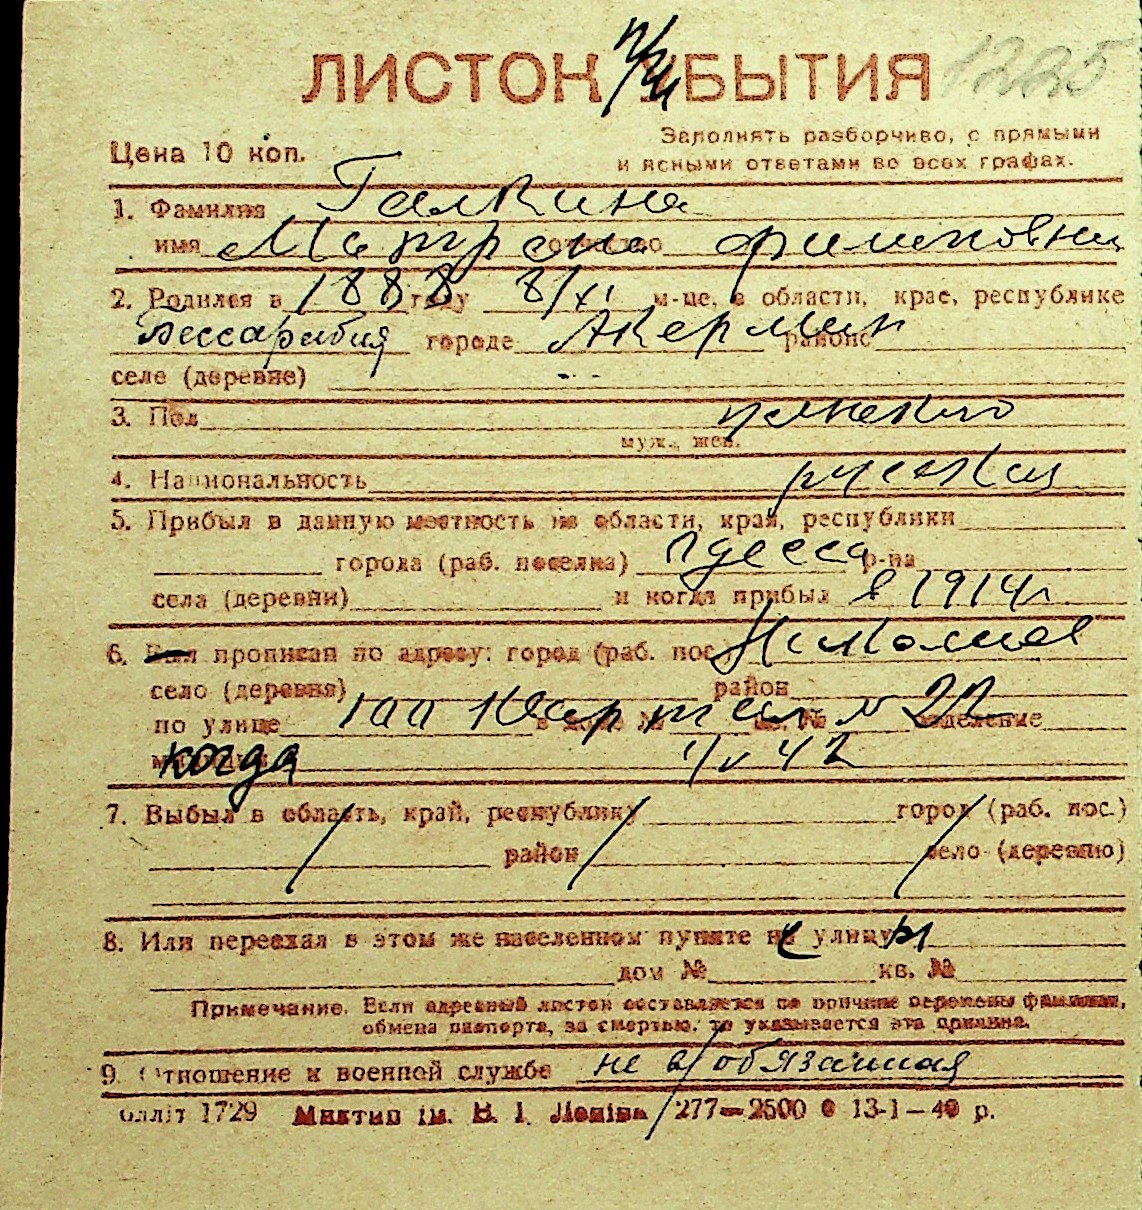 ЛИСТОК УБЫТИЯ 1225
Цена 10 коп. Заполнять разборчиво, с прямыми
и ясными ответами во всех графах.
1. Фамилия Галкина
имя Матрена отчество Филиповна
2. Родился в 1888 году 8/XI м-це, в области, крае, республике
Бессарабия городе Акерман районе
селе (деревне)
3. Пол женский
муж., жен.
4. Национальность русская
5. Прибыл в данную местность из области, края, республики
города (раб. поселка) Одесса р-на
села (деревни) и когда прибыл в 1914г
6. Был прописан по адресу: город (раб. пос.) Николаев
село (деревня) район
по улице 100 Квартал в доме № кв. № 22 отделение
милиции когда 4/V 42
7. Выбыл в область, край, республику город (раб. пос.)
район село (деревню)
8. Или переехал в этом же населенном пункте на улицу
дом № кв. №
Примечание. Если адресный листок составляется по причине перемены фамилии,
обмена паспорта, за смертью, то указывается эта причина.
9. Отношение к военной службе не в/обязанная
олліт 1729 Миктип ім. В. І. Леніна 277—2500 13-1—40 р.